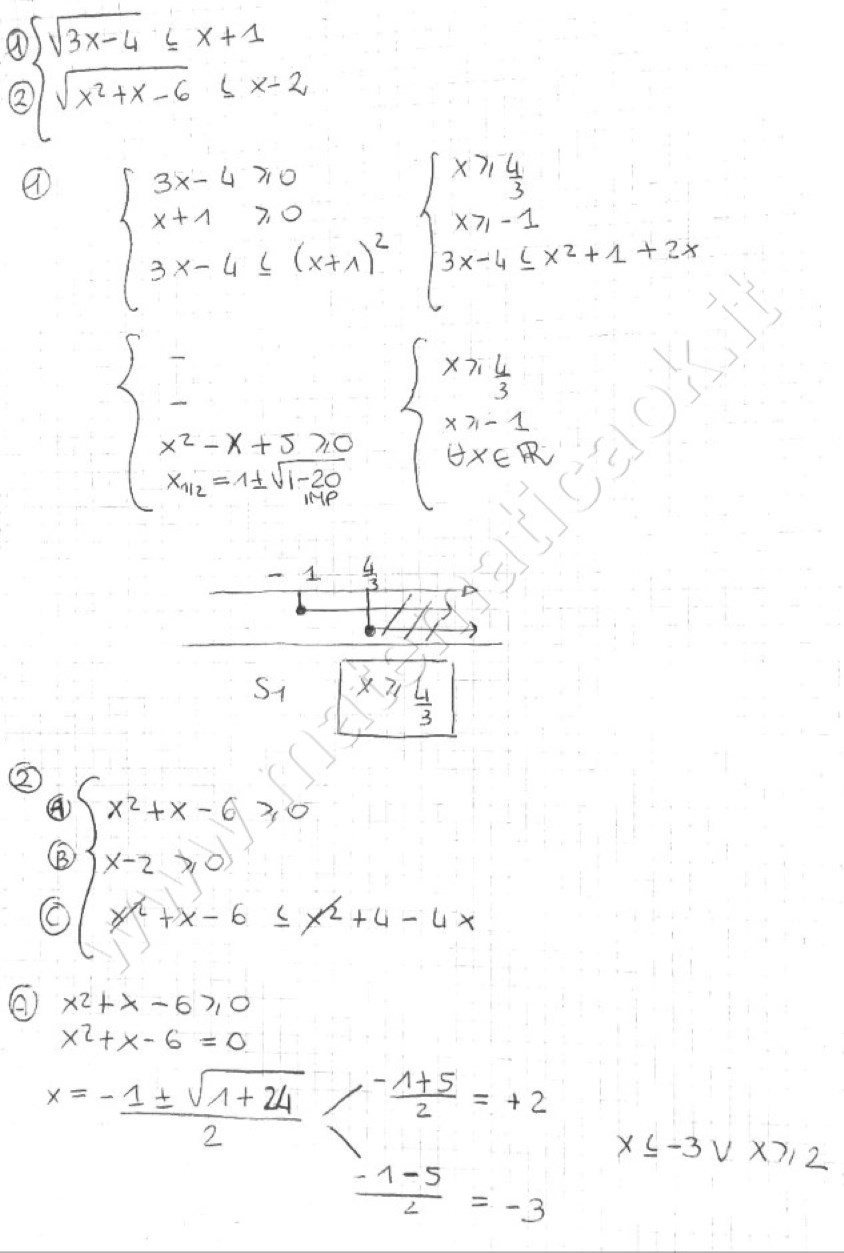 ① √3x-4 ≤ x+1
② √x²+x-6 ≤ x-2
①
3x-4 ≥ 0
x+1 ≥ 0
3x-4 ≤ (x+1)²
x ≥ 4/3
x ≥ -1
3x-4 ≤ x²+1+2x
-
-
x²-x+5 ≥ 0
x1/2 = 1±√1-20
IMP
x ≥ 4/3
x ≥ -1
∀x∈ℝ
-1 4/3
S1 x ≥ 4/3
②
Ⓐ x²+x-6 ≥ 0
Ⓑ x-2 ≥ 0
Ⓒ x²+x-6 ≤ x²+4-4x
Ⓐ x²+x-6 ≥ 0
x²+x-6 = 0
x = -1±√1+24 / 2
-1+5 / 2 = +2
-1-5 / 2 = -3
x ≤ -3 ∨ x ≥ 2
www.matematicaok.it